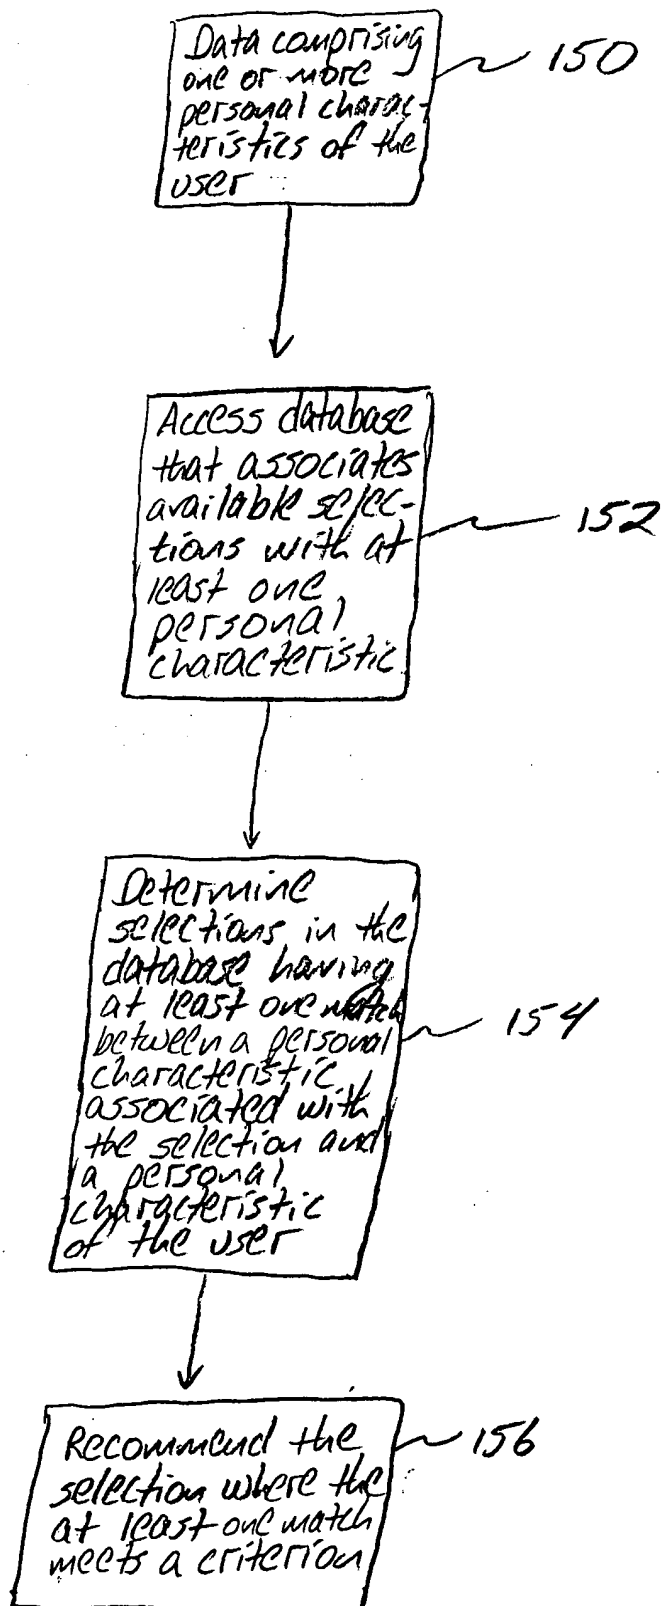 Data comprising
one or more
personal charac-
teristics of the
user
150
Access database
that associates
available selec-
tions with at
least one
personal
characteristic
152
Determine
selections in the
database having
at least one match
between a personal
characteristic
associated with
the selection and
a personal
characteristic
of the user
154
Recommend the
selection where the
at least one match
meets a criterion
156